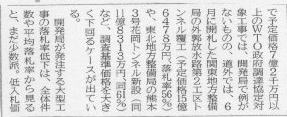 で予定価格7億2千万円以
上のWTO政府調達協定対
象工事では、開発局で例が
ないものの、道外では、6
月に開札した関東地方整備
局の外郭放水路第2工区ト
ンネル覆工（予定価格15億
6478万円、落札率58%）
や、東北地方整備局の熊本
3号花岡トンネル新設（同
11億8313万円、同61%）
など、調査基準価格を大き
く下回るケースが出てい
る。
開発局が発注する大型工
事の落札率低下は、全体件
数や平均落札率から見る
と、まだ少数派。低入札価